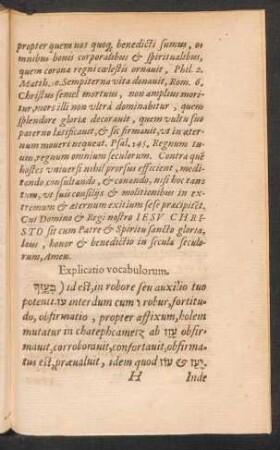 propter quem nos quoq; benedicti sumus, o-
mnibus bonis corporalibus & spiritualibus,
quem corona regni cœlestis ornauit, Phil. 2.
Matth. Sempiterna vita donauit, Rom. 6.
Christus semel mortuus, non amplius mori-
tur, mors illi non vltrà dominabitur, quem
splendore gloriæ decorauit, quem vultu suo
paterno lætificauit, & sic firmauit, vt in æter-
num moueri nequeat. Psal. 145. Regnum tu-
um, regnum omnium seculorum. Contra quē
hostes vniuersi nihil prorsus efficient, medi-
tando, consultando, & conando, nisi hoc tan-
tum, vt suis consilijs & molitionibus in ex-
tremum & æternum exitium sese præcipitēt.
Cui Domino & Regi nostro IESV CHRI-
STO sit cum Patre & Spiritu sancto gloria,
laus, honor & benedictio in secula seculo-
rum, Amen.
Explicatio vocabulorum.
בְּעָזְּךָ ) id est, in robore seu auxilio tuo
potenti. עֹז interdum cum ו robur, fortitu-
do, obfirmatio, propter affixum, holem
mutatur in chatephcametz ab עָזַז obfir-
mauit, corroborauit, confortauit, obfirma-
tus est, præualuit, idem quod עוּז & יָעַז.
H Inde